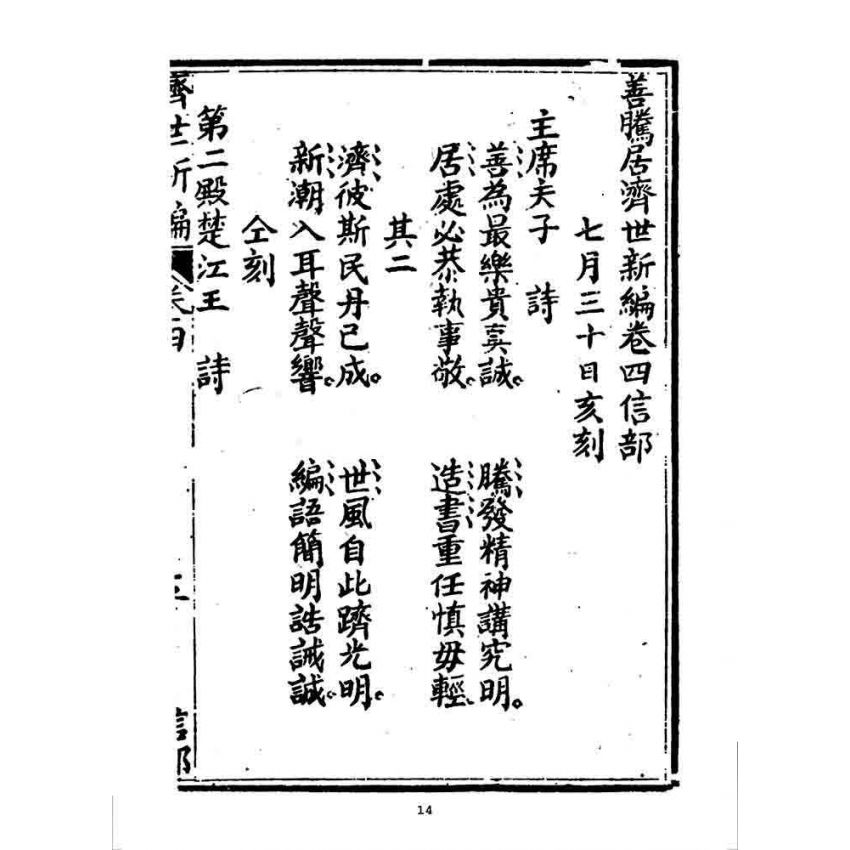 善騰居濟世新編卷四信部
七月三十日亥刻
主席夫子　詩
善為最樂貴真誠。　騰發精神講究明。
居處必恭執事敬。　造書重任慎毋輕。
其二
濟彼斯民丹已成。　世風自此躋光明。
新潮入耳聲聲響。　編語簡明誥誡誠。
仝刻
第二殿楚江王　詩
濟世新編　卷四　信部
14